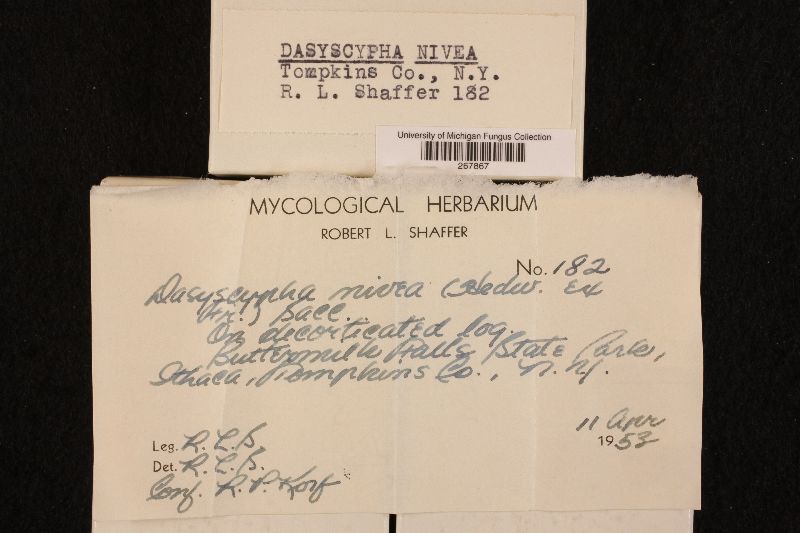 DASYSCYPHA NIVEA
Tompkins Co., N.Y.
R. L. Shaffer 182
University of Michigan Fungus Collection
267867
MYCOLOGICAL HERBARIUM
ROBERT L. SHAFFER
No. 182
Dasyscypha nivea (Hedw. ex
Fr.) Sacc.
On decorticated log.
Buttermilk Falls State Park,
Ithaca, Tompkins Co., N.Y.
11 Apr
1953
Leg. R.L.S.
Det. R.L.S.
Conf. R.P. Korf